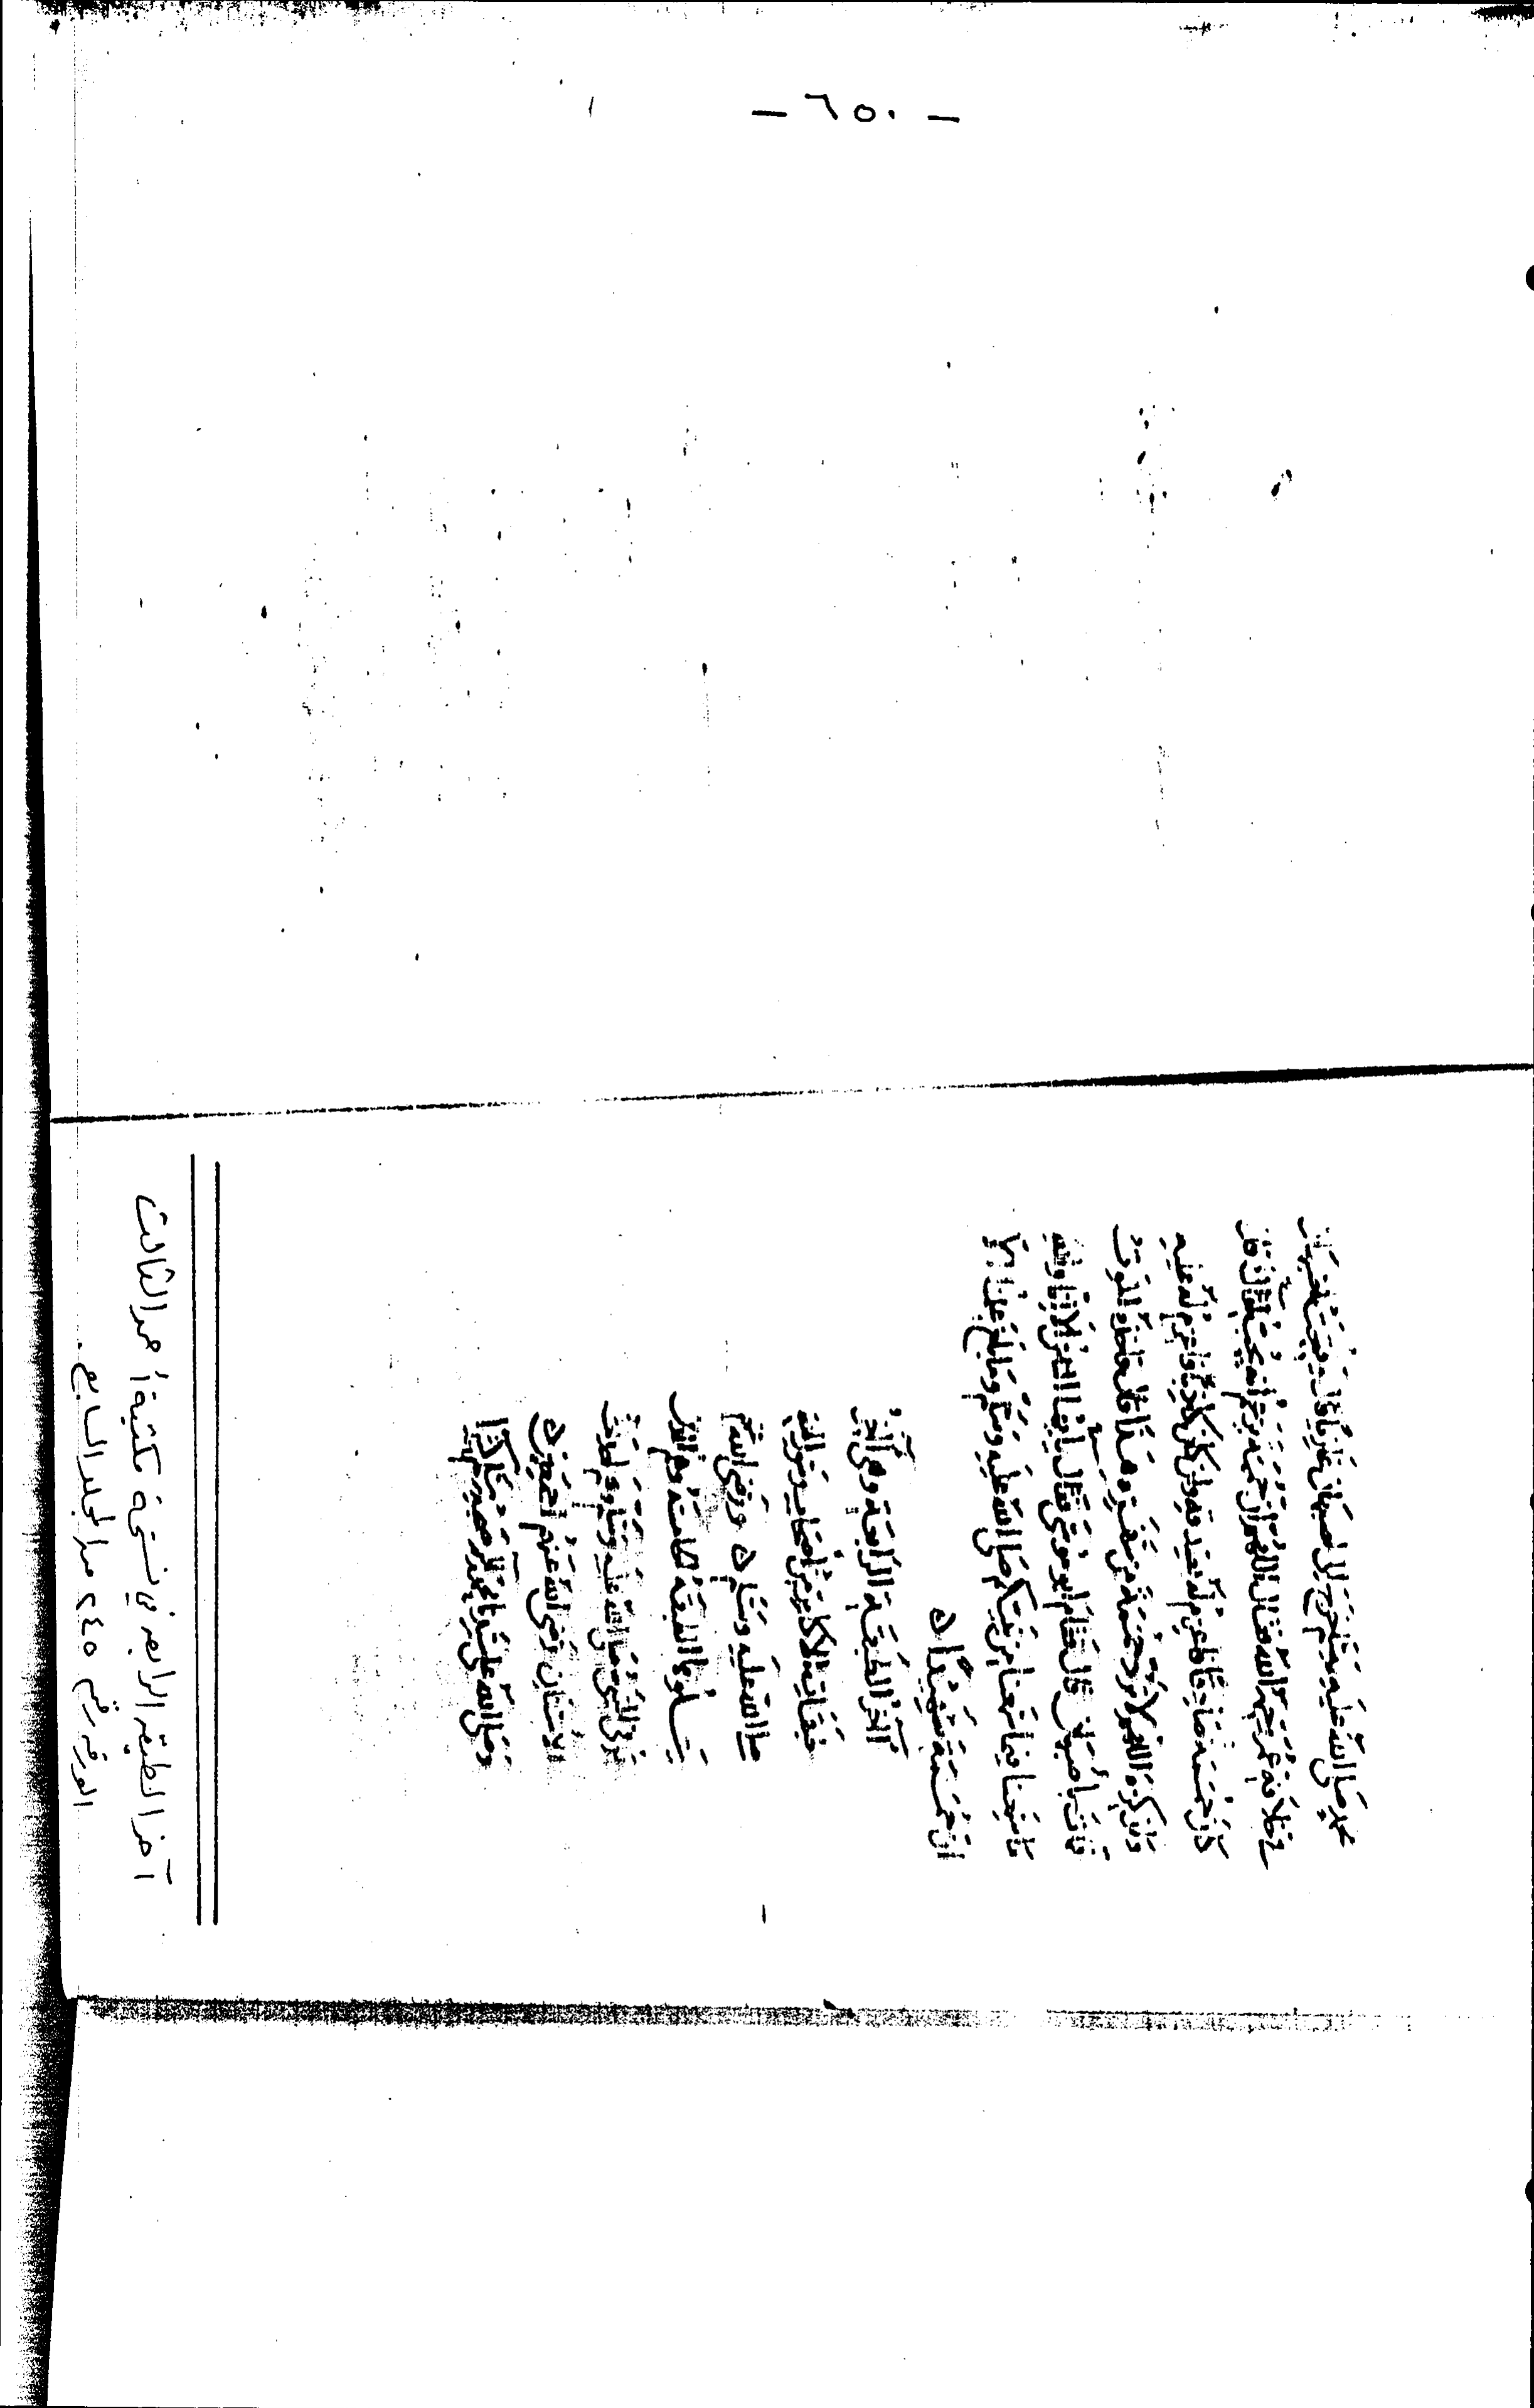 – ٦٥٠ –
محمد صلى الله عليه وسلم خرج إلى أصبهان
فقال اللهم إن حممة يزعم أنه يحب لقاءك فإن كان
حممة صادقا فاعزم له بصدقه وإن كان كاذبا فاعزم له عليه
وإن كره اللهم لا ترد حممة من سفره هذا قال فأخذه الموت
فمات بأصبهان قال فقام أبو موسى فقال يا أيها الناس إنا والله
ما سمعنا فيما سمعنا من نبيكم صلى الله عليه وسلم وما بلغ علمنا إلا
أن حممة شهيد
آخر الطبقة الرابعة وهي آخر
طبقاته الأكابر من أصحاب رسول الله
صلى الله عليه وسلم ورضي الله عنهم
يتلوها الطبقة الخامسة وهم الذين
توفي النبي صلى الله عليه وسلم وهم أحداث
الأسنان رضي الله عنهم أجمعين
وصلى الله على سيدنا محمد وآله وصحبه وسلم
آخر الطبقة الرابعة من نسخة مكتبة أحمد الثالث
الورقة رقم ٢٤٥ من المجلد السابع .